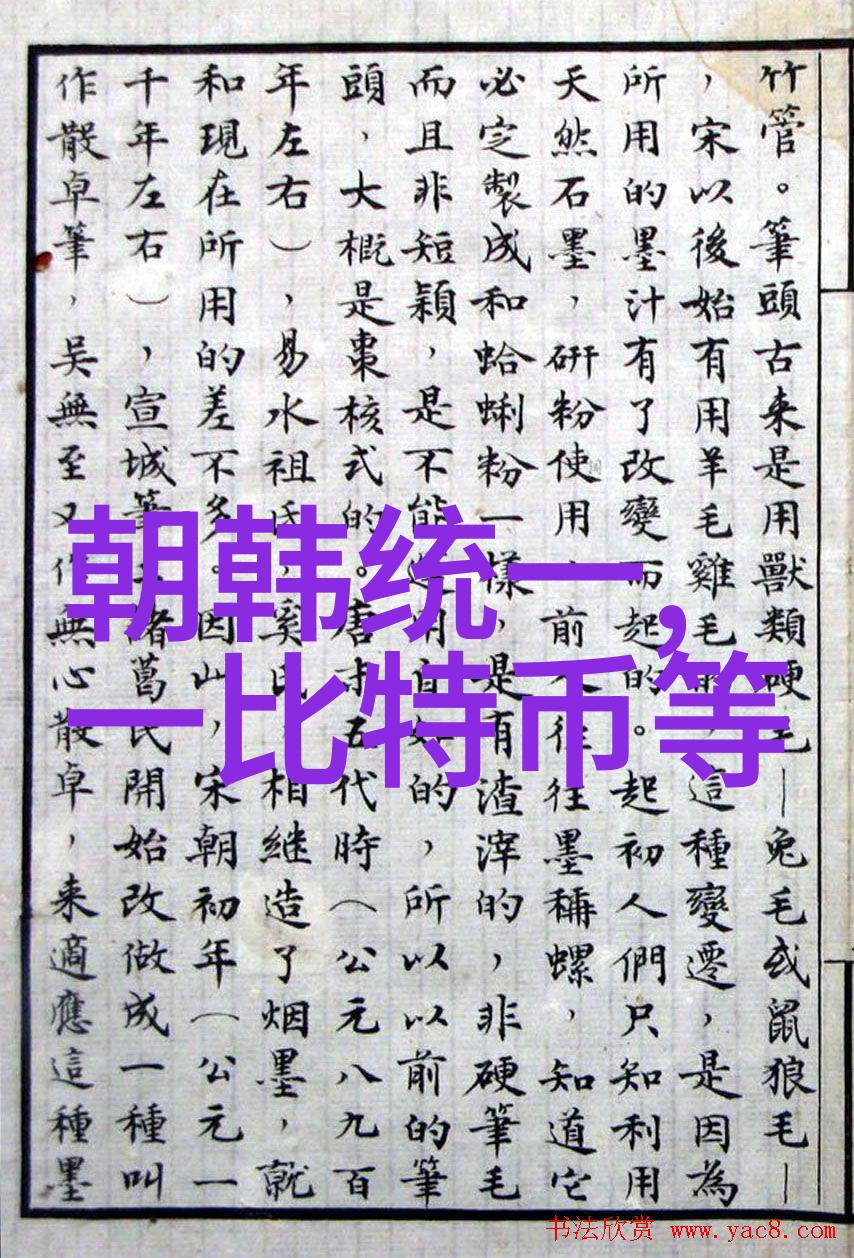 竹管。筆頭古来是用獸類硬毛—兔毛或鼠狼毛—
，宋以後始有用羊毛雞毛的，這種變遷，是因為
所用的墨汁有了改變而起的。起初人們只知利用
天然石墨，研粉使用，前人往往墨稱螺，知道它
必定製成和蛤蜊粉一樣，是有渣滓的，非硬筆毛
而且非短穎，是不能運用自如的，所以以前的筆
頭，大概是棗核式的。唐末五代時（公元八九百
年左右），易水祖氏，奚氏，相继造了烟墨，就
和現在所用的差不多。因此，宋朝初年（公元一
千年左右），宣城筆工諸葛氏開始改做成一種叫
作散卓筆，吴無至又作無心散卓，来適應這種墨
朝韩统一,
一比特币等
书法欣赏 www.yac8.com